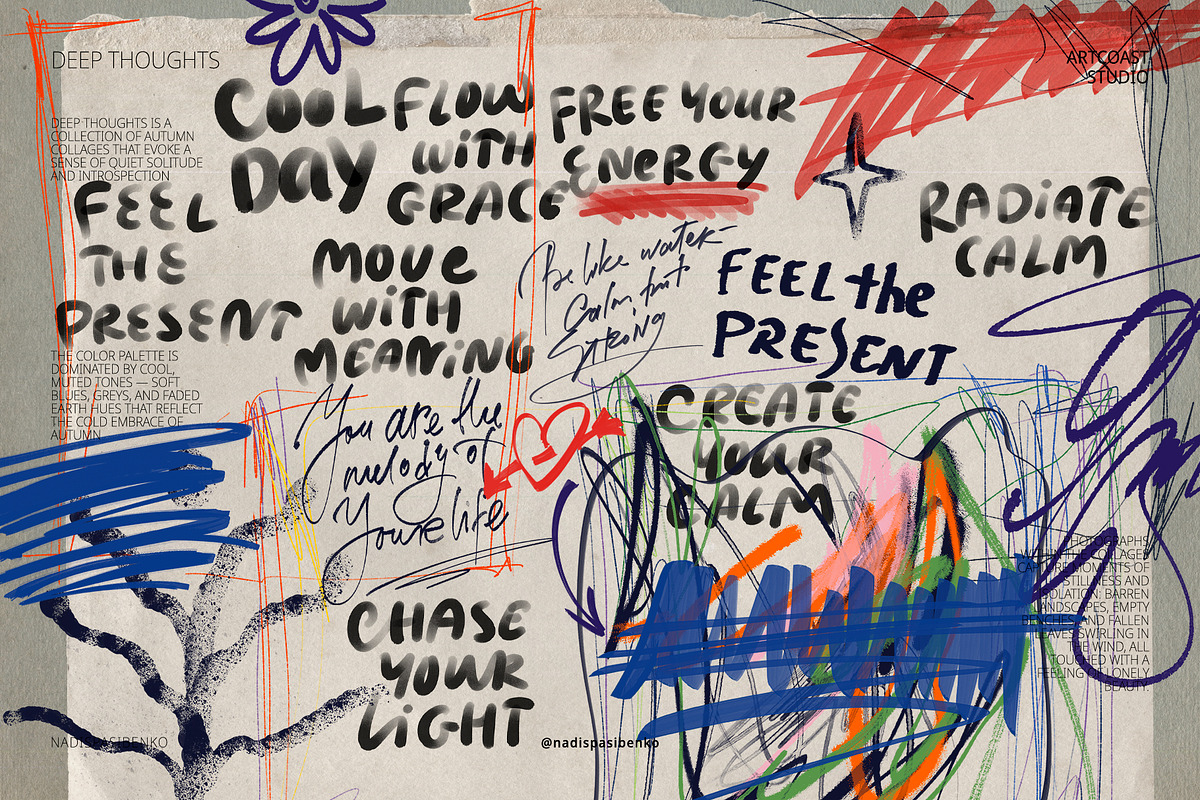 DEEP THOUGHTS
ARTCOAST
STUDIO
DEEP THOUGHTS IS A
COLLECTION OF AUTUMN
COLLAGES THAT EVOKE A
SENSE OF QUIET SOLITUDE
AND INTROSPECTION
COOL
DAY
FLOW
WITH
GRACE
FREE YOUR
ENERGY
FEEL
THE
PRESENT
MOVE
WITH
MEANING
Be like water
Calm but
Strong
FEEL the
PRESENT
RADIATE
CALM
THE COLOR PALETTE IS
DOMINATED BY COOL,
MUTED TONES — SOFT
BLUES, GREYS, AND FADED
EARTH HUES THAT REFLECT
THE COLD EMBRACE OF
AUTUMN
You are the
melody of
Youre life
CREATE
YOUR
CALM
PHOTOGRAPHS
COLLAGES
CAPTURE MOMENTS OF
STILLNESS AND
BARREN
LANDSCAPES, EMPTY
BENCHES, AND FALLEN
LEAVES SWIRLING IN
THE WIND, ALL
TOUCHED WITH A
FEELING OF LONELY
BEAUTY.
CHASE
YOUR
LIGHT
NADISPASIBENKO
@nadispasibenko